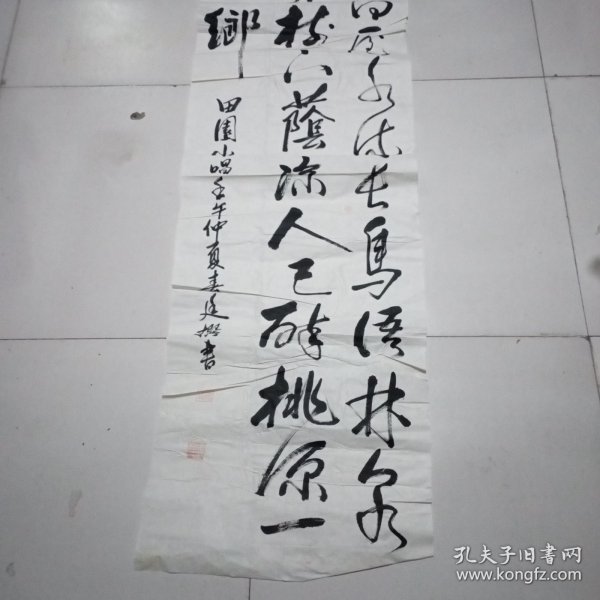 水流长鸟语林泉
树下荫凉人已醉桃源一
乡
田园小唱壬午仲夏春廷撰书
孔夫子旧书网
www.kongfz.com